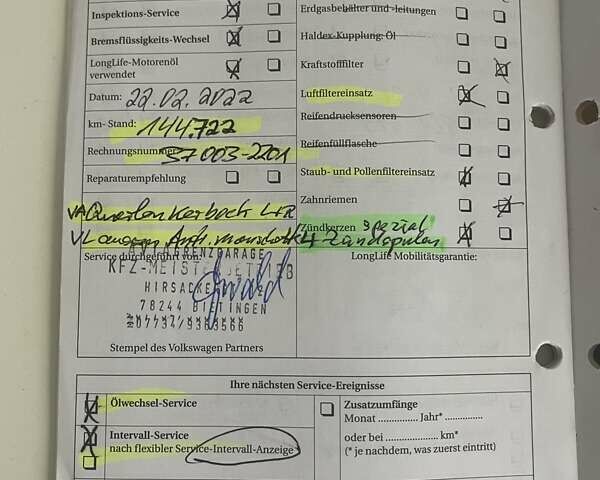 Inspektions-Service
Bremsflüssigkeits-Wechsel
LongLife-Motorenöl
verwendet
Datum: 22.02.2022
km-Stand: 144.722
Rechnungsnummer: 37003-2201
Reparaturempfehlung
VA Querlenker L+R
VL
Service durchgeführt von:
KFZ-MEISTERBETRIEB
78244
07734/9363566
Stempel des Volkswagen Partners
Erdgasbehälter und -leitungen
Haldex-Kupplung: Öl
Kraftstofffilter
Luftfiltereinsatz
Reifendrucksensoren
Reifenfüllflasche
Staub- und Pollenfiltereinsatz
Zahnriemen
Zündkerzen spezial
4 Zündspulen
LongLife Mobilitätsgarantie:
Ihre nächsten Service-Ereignisse
Ölwechsel-Service
Intervall-Service
nach flexibler Service-Intervall-Anzeige
Zusatzumfänge
Monat ................ Jahr* ..............
oder bei ................. km*
(* je nachdem, was zuerst eintritt)